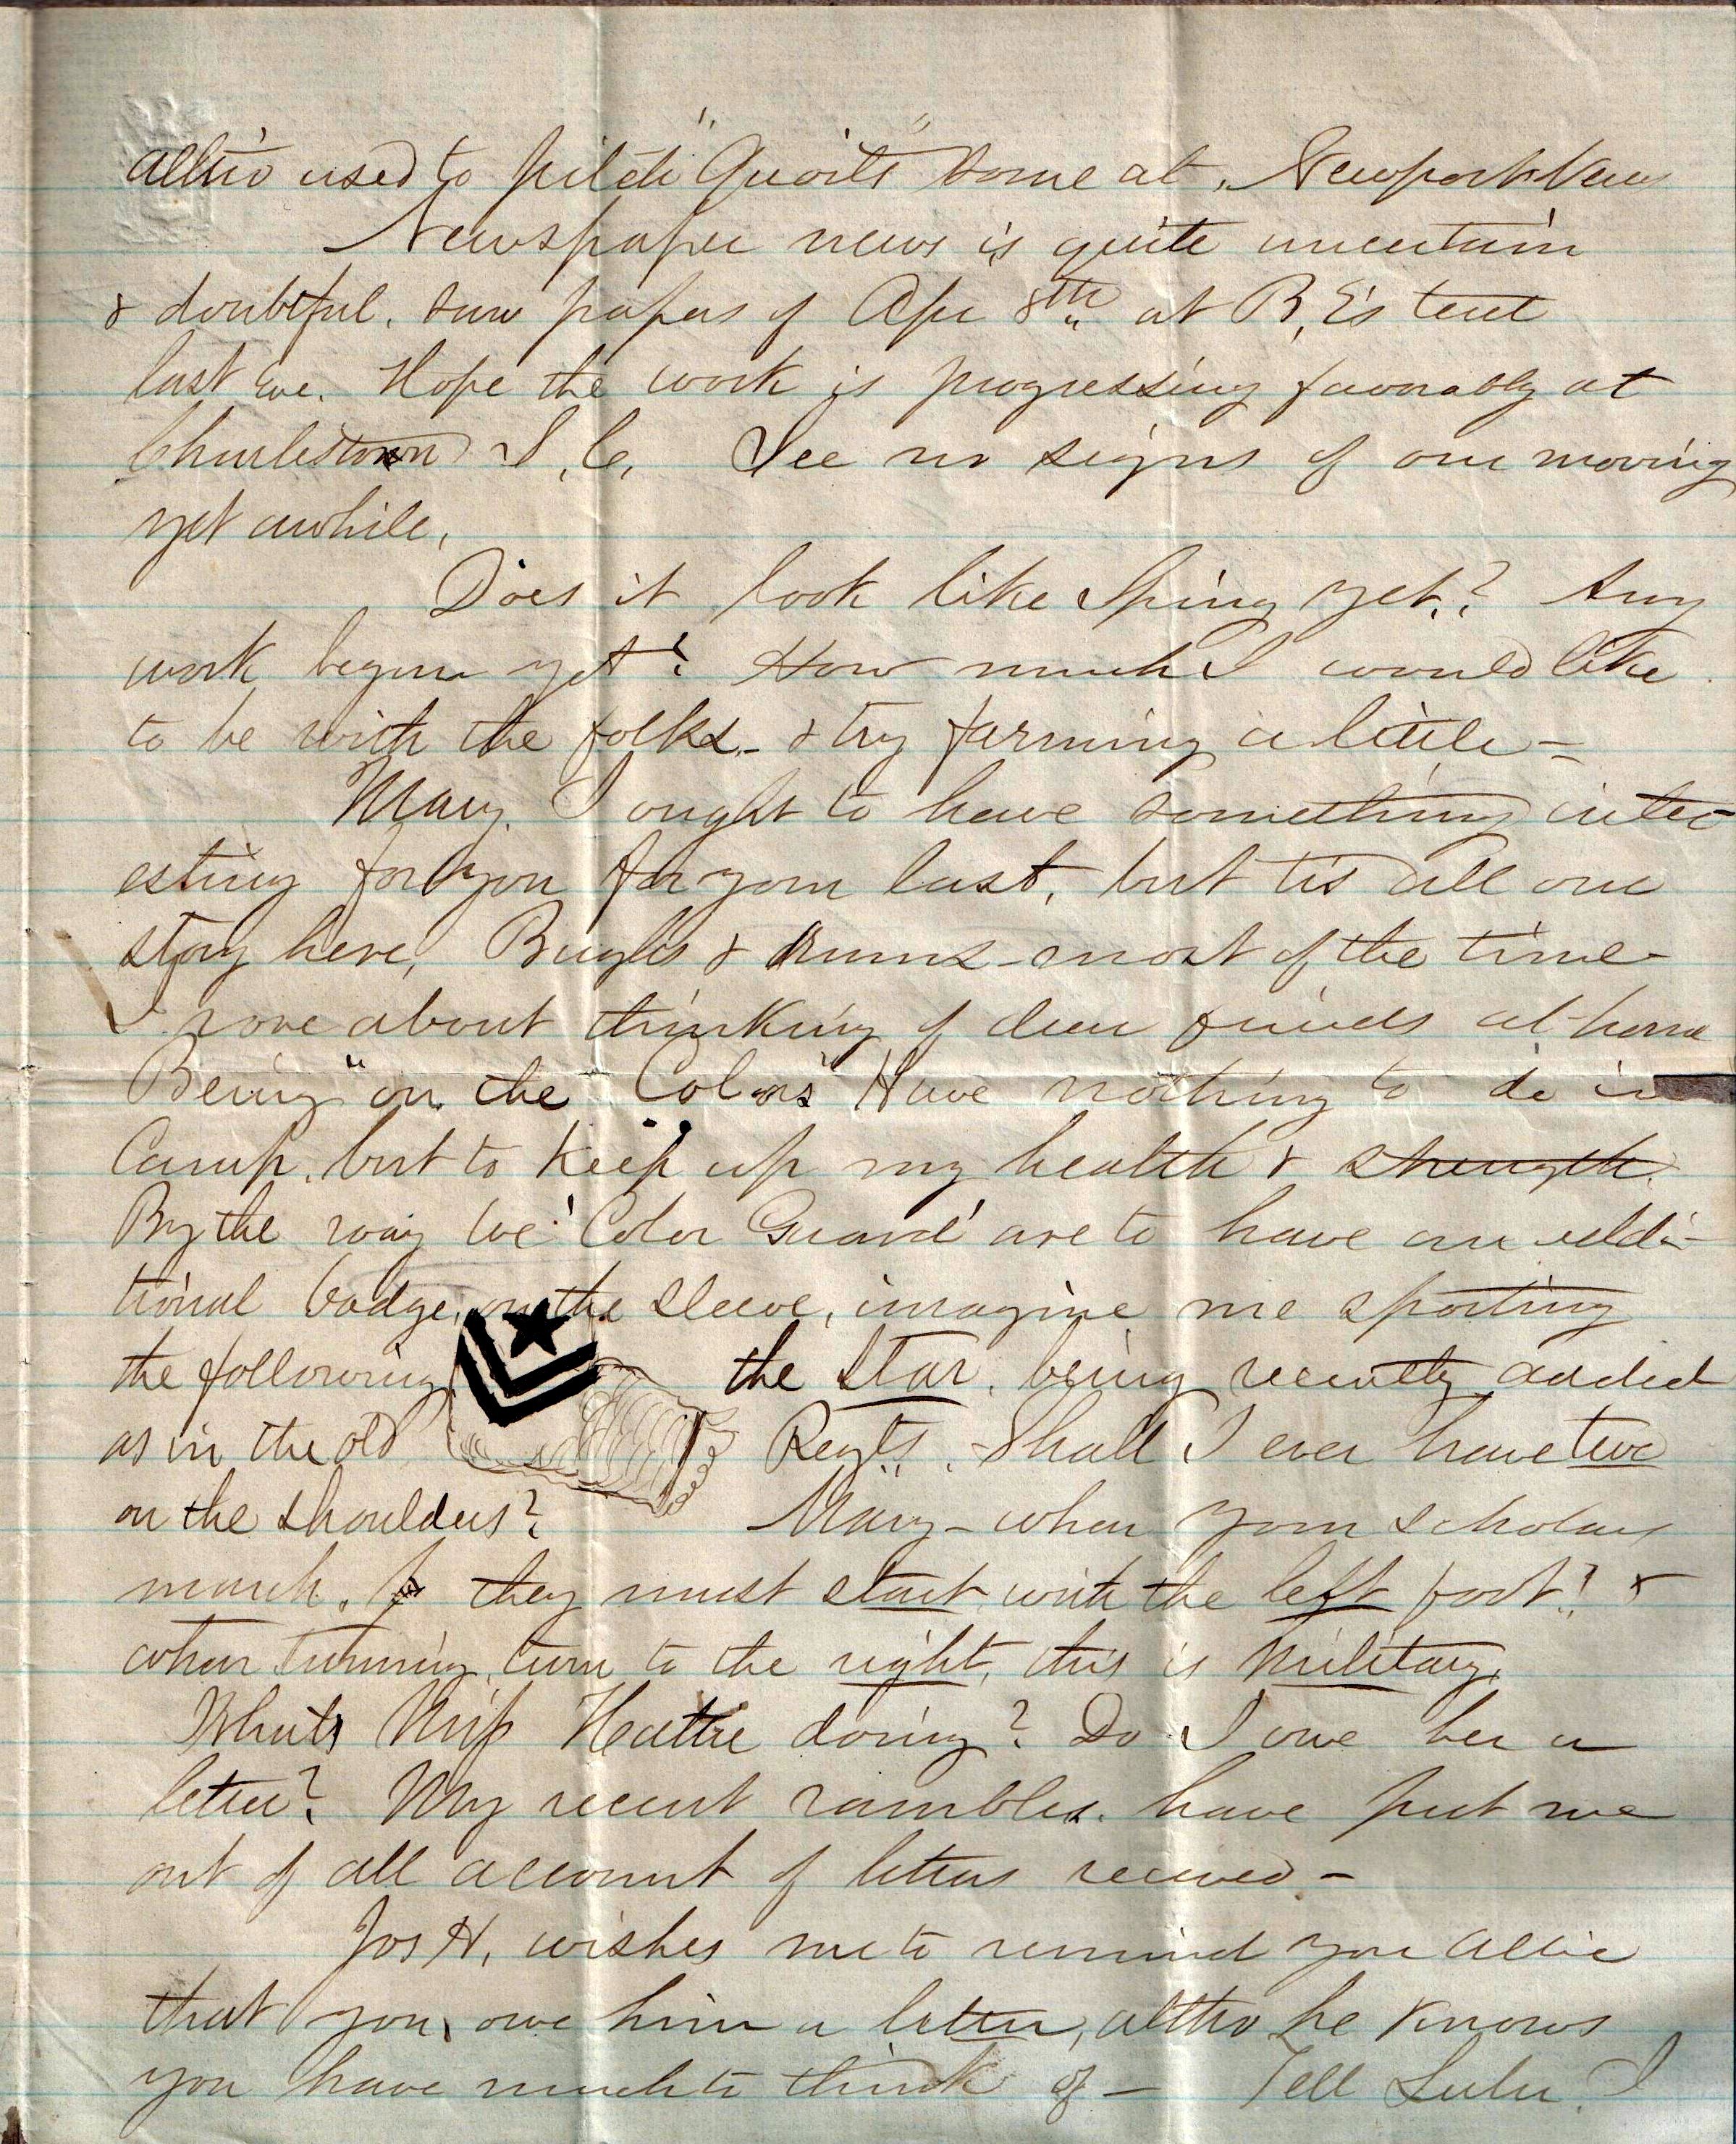 altho used to pitch "Quoits" some at Newport News
Newspaper news is quite uncertain
& doubtful. saw papers of Apr 8th at B, E's tent
last Eve. Hope the work is progressing favorably at
Charlestown S, C, See no signs of our moving
yet awhile,
Does it look like Sping yet? Any
work begun yet? How much I would like
to be with the folks - & try farming a little -
Mary. I ought to have something inter-
esting for you for your last, but tis all one
story here, Bugles & drums - most of the time
I rove about thinking of dear friends at home
Being "on the Colors" Have nothing to do in
Camp. but to keep up my health & strength.
By the way we 'Color Guard' are to have an addi-
tional badge, on the sleeve, imagine me sporting
the following the Star. being recently added
as in the old Regts. Shall I ever have two
on the shoulders? Mary - when your scholars
march. they must start with the left foot! &
when turning, turn to the right, this is military.
Whats Miss Hattie doing? Do I owe her a
letter? My recent rambles have put me
out of all account of letters received -
Jos H, wishes me to remind you Allie
that you owe him a letter, altho he knows
you have much to think of - Tell Lulu I